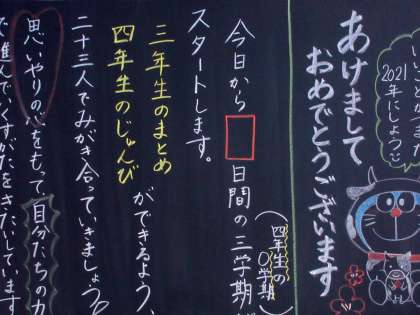 2021
年にしょう
あけまして
おめでとうございます
今日から□日間の三学期
(四年生の
0学期)
スタートします。
三年生のまとめ
四年生のじゅんび
ができるよう、
二十三人でみがき合っていきましょう。
思いやりの心をもって自分たちの力
で進んでいくすがたをきたいしています